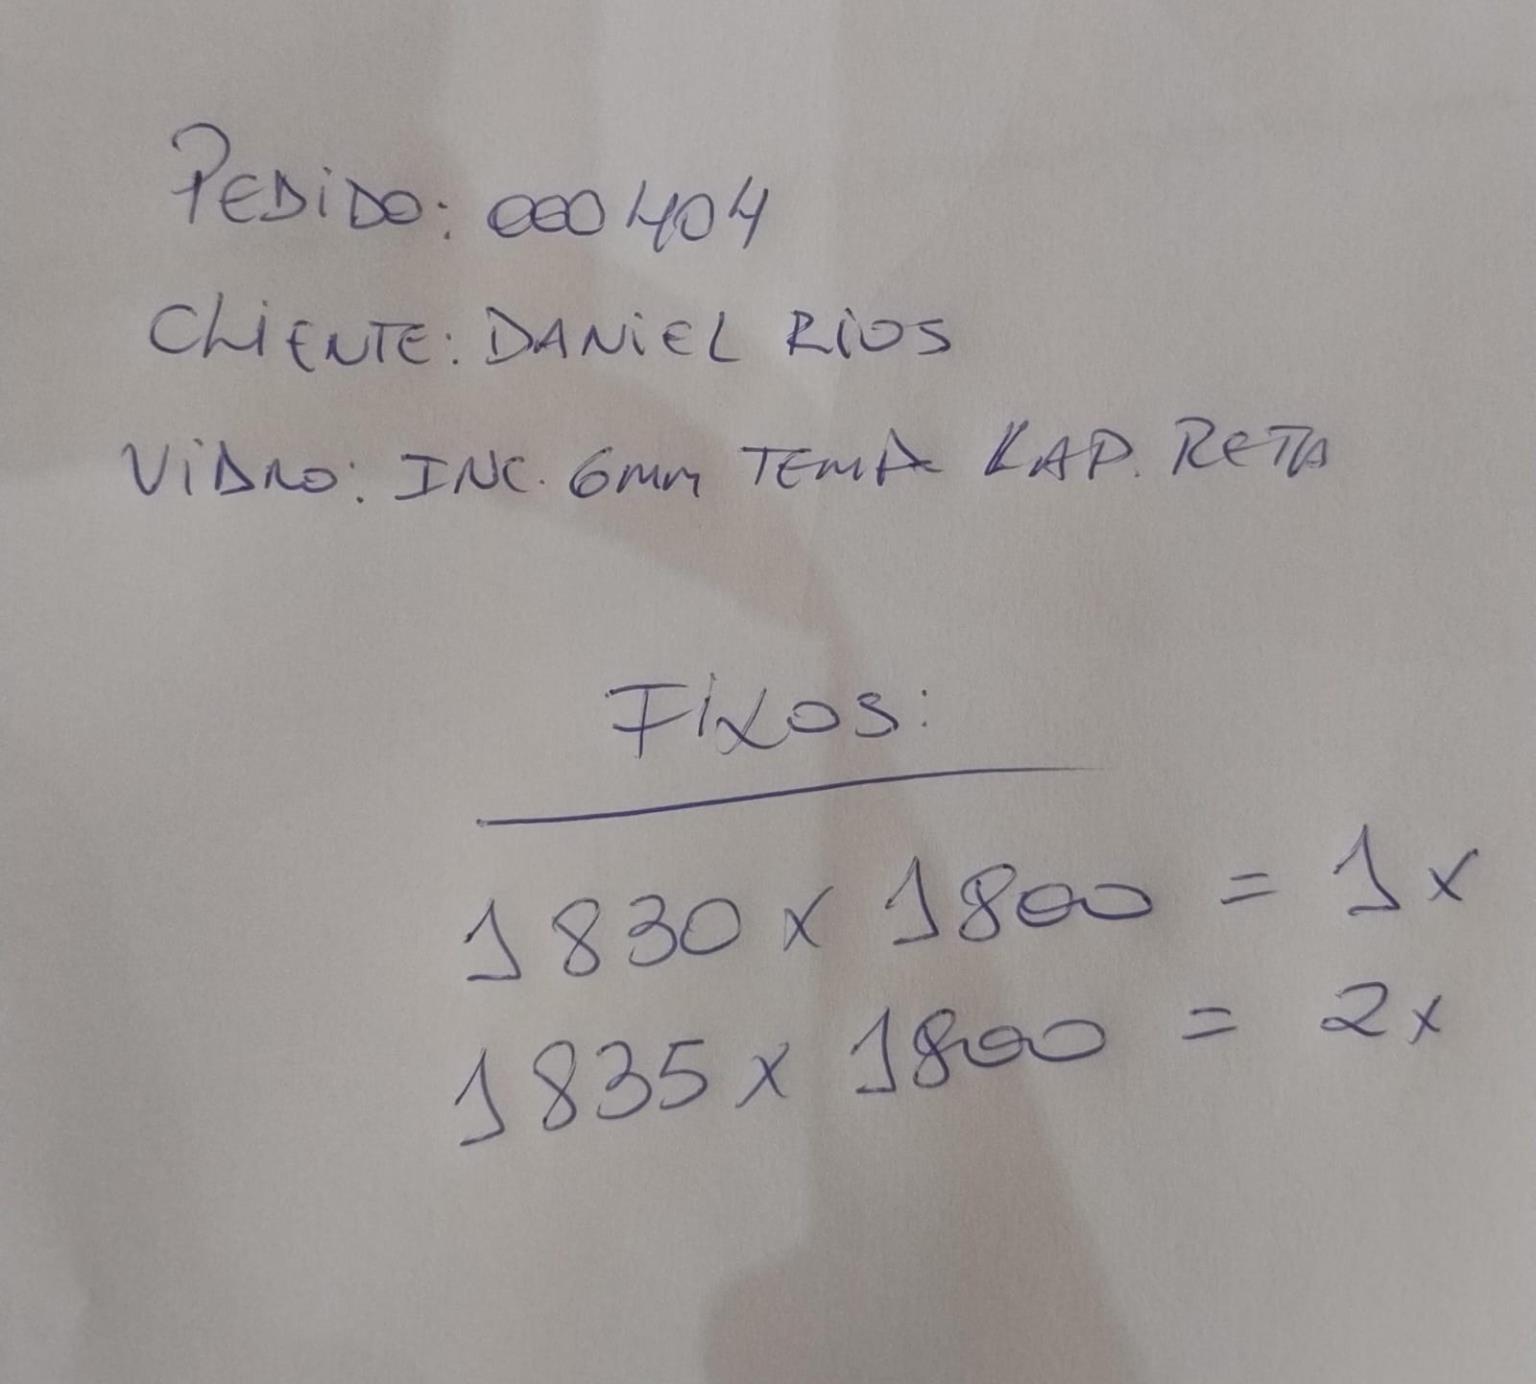 PEDIDO: 000404
CLIENTE: DANIEL RIOS
VIDRO: INC. 6mm TEMP LAP. RETA
FIXOS:
1830 x 1800 = 1x
1835 x 1800 = 2x